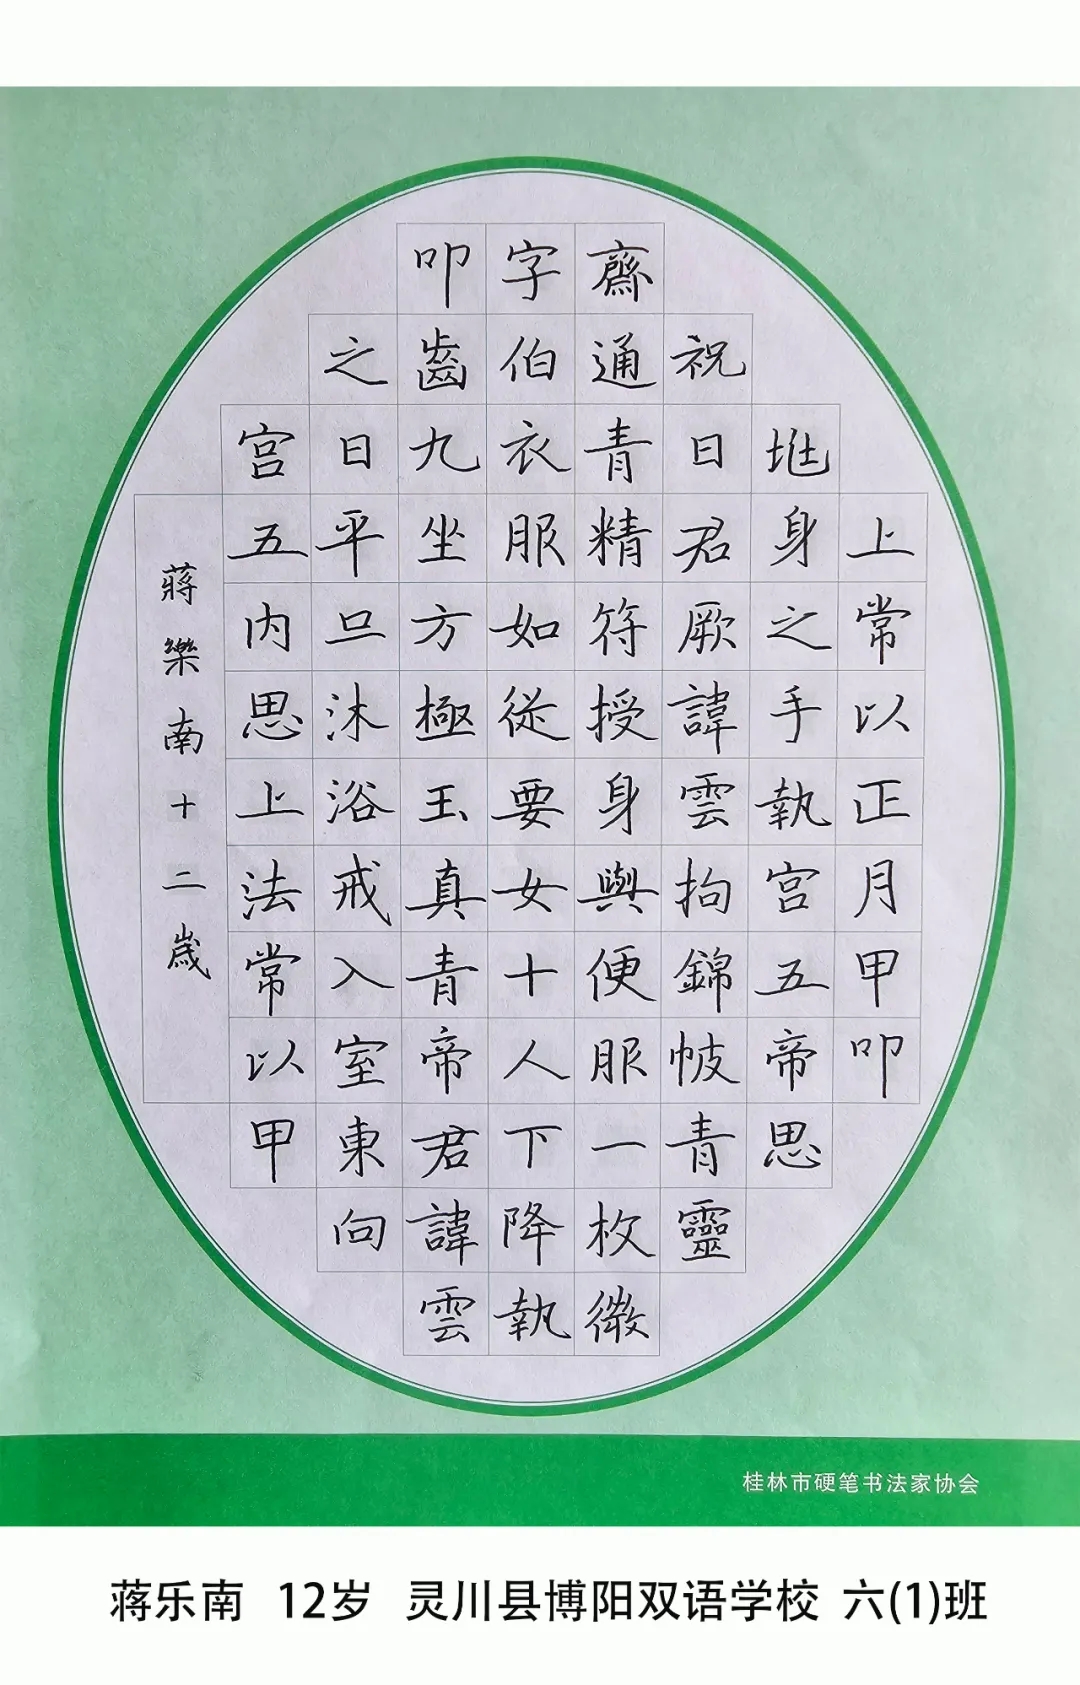 上常以正月甲叩
身之手執宫五帝思
祝日君厥諱雲拘錦帔青靈
齋通青精符授身與便服一枚微
字伯衣服如從要女十人下降執
叩齒九坐方極玉真青帝君諱雲
之日平旦沐浴戒入室東向
宫五内思上法常以甲
蔣樂南十二歲
桂林市硬笔书法家协会
蒋乐南 12岁 灵川县博阳双语学校 六(1)班